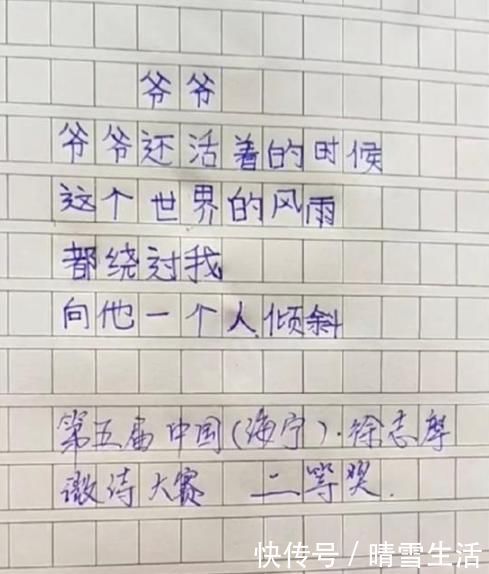 爷爷
爷爷还活着的时候
这个世界的风雨
都绕过我
向他一个人倾斜
第五届中国(海宁)·徐志摩
微诗大赛 二等奖.
快传号/晴雪生活